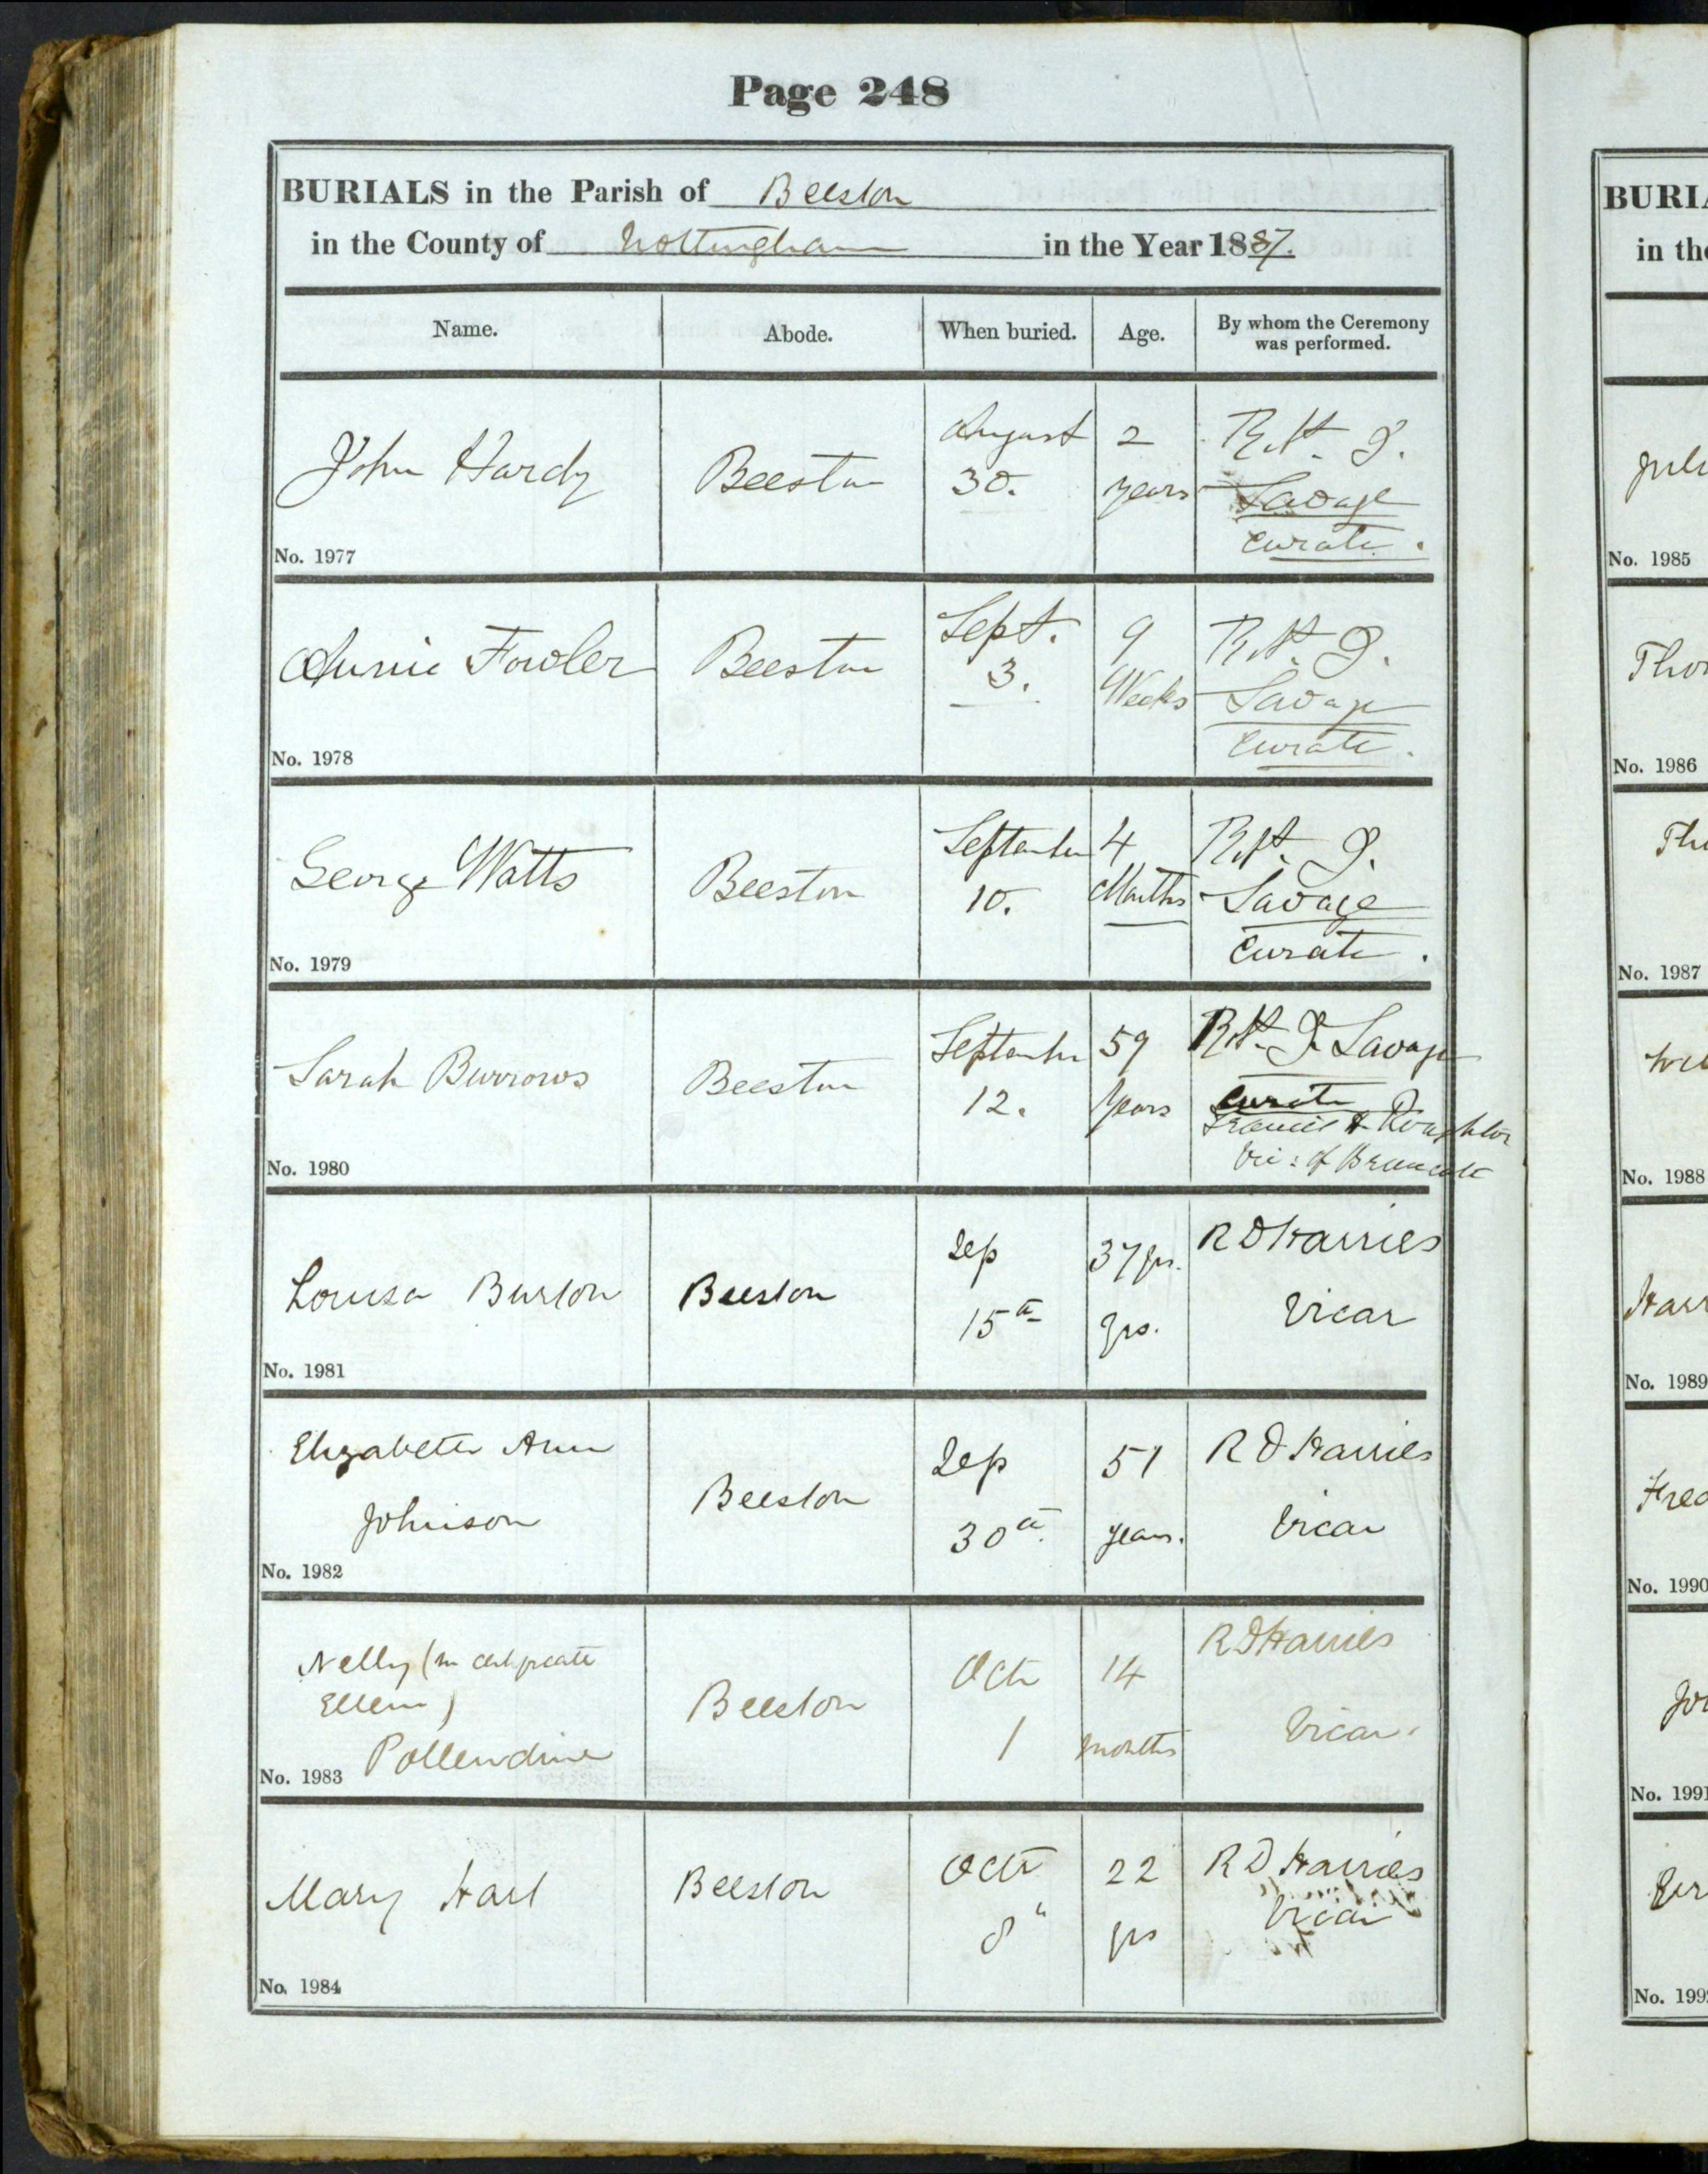 Page 248
BURIALS in the Parish of Beeston
in the County of Nottingham in the Year 1887.
Name. Abode. When buried. Age. By whom the Ceremony was performed.
John Hardy Beeston August 30. 2 years Savage curate.
No. 1977
Annie Fowler Beeston Sept. 3. 9 Weeks Savage curate.
No. 1978
George Watts Beeston September 10. 4 Months Savage curate.
No. 1979
Sarah Burrows Beeston September 12. 59 Years Savage curate
Vic: of Bramcote
No. 1980
Louisa Burton Beeston Sep 15th 37 yrs. yrs. R D Harries Vicar
No. 1981
Elizabeth Ann Johnson Beeston Sep 30th 51 years. R D Harries Vicar
No. 1982
Nelly (in certificate
Ellen)
Pollendine Beeston Oct 1 14 months R D Harries Vicar.
No. 1983
Mary Hart Beeston Oct 8th 22 yrs R D Harries Vicar
No. 1984
BURIA
in the
No. 1985
No. 1986
No. 1987
No. 1988
No. 1989
No. 1990
No. 1991
No. 199